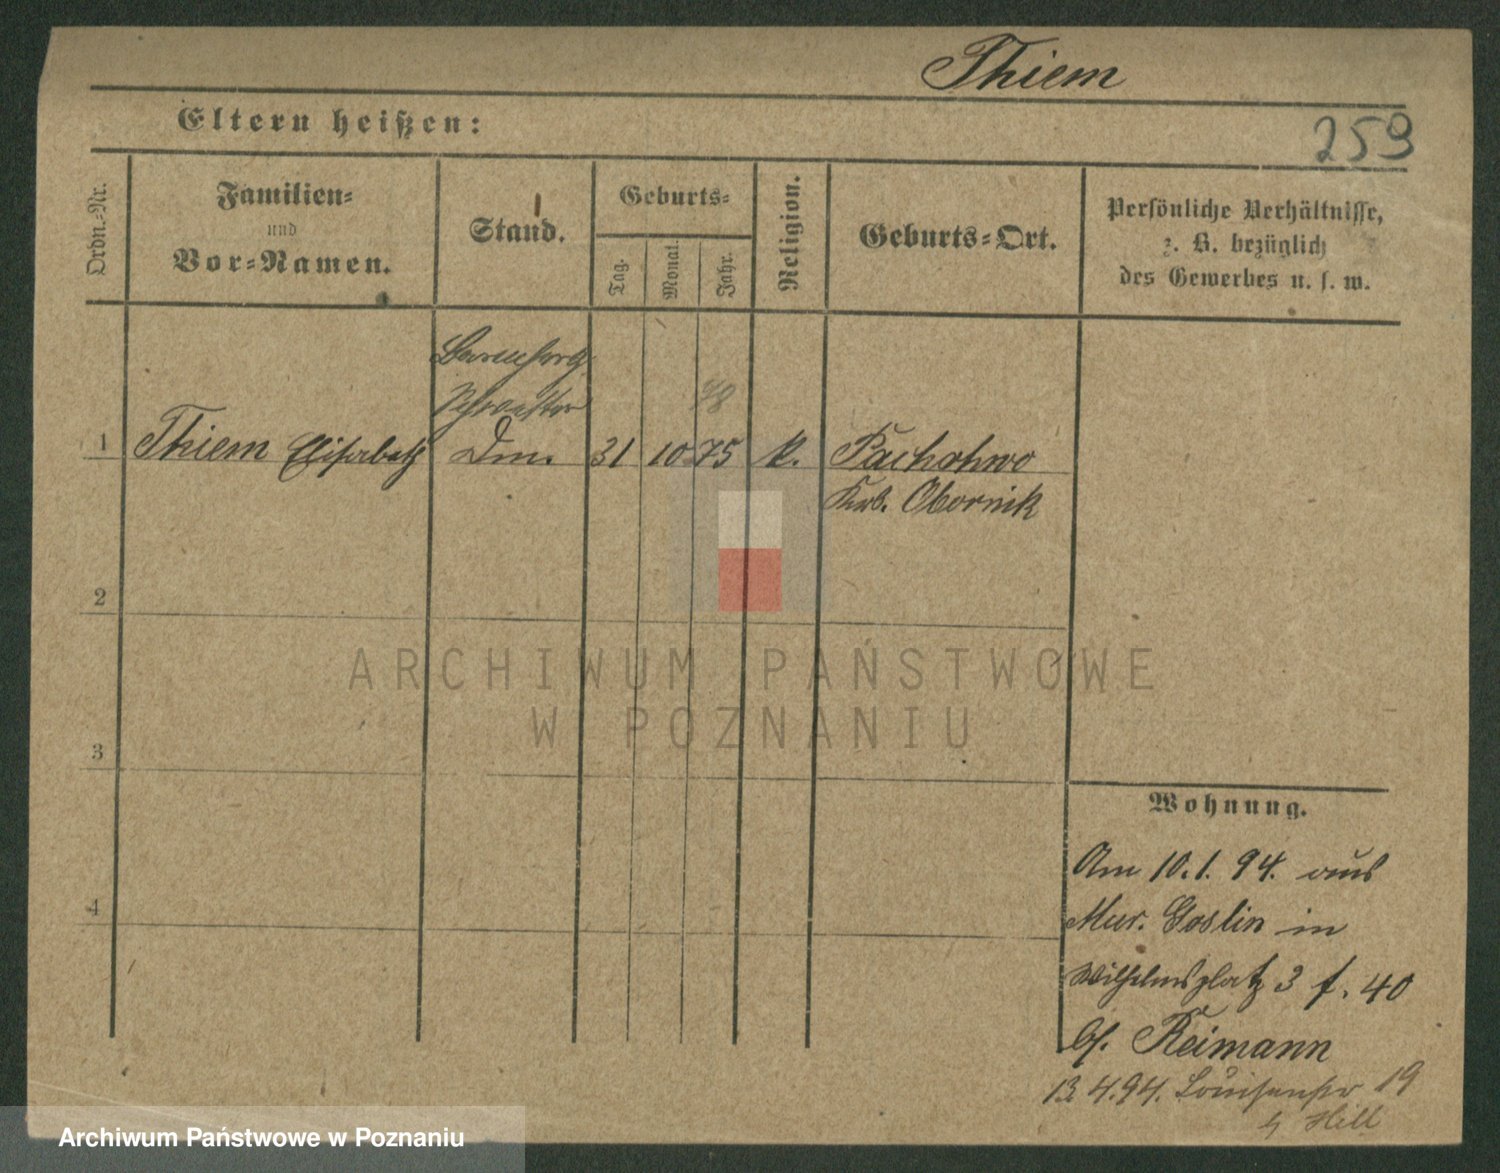 Thiem
259
Eltern heißen:
Ordn.-Nr.
Familien-
und
Vor-Namen.
Stand.
Geburts-
Tag.
Monat.
Jahr.
Religion.
Geburts-Ort.
Persönliche Verhältnisse,
z. B. bezüglich
des Gewerbes u. s. w.
Schwester
78
1 Thiem Elisabeth 31 10 75 k. Pachohwo
Obornik
2
ARCHIWUM PAŃSTWOWE
W POZNANIU
3
Wohnung.
4
Am 10.1.94. aus
Mur. Goslin in
Wilhelmsplatz 3 f. 40
bf. Reimann
13.4.94. Louisenstr 19
b Hill
Archiwum Państwowe w Poznaniu